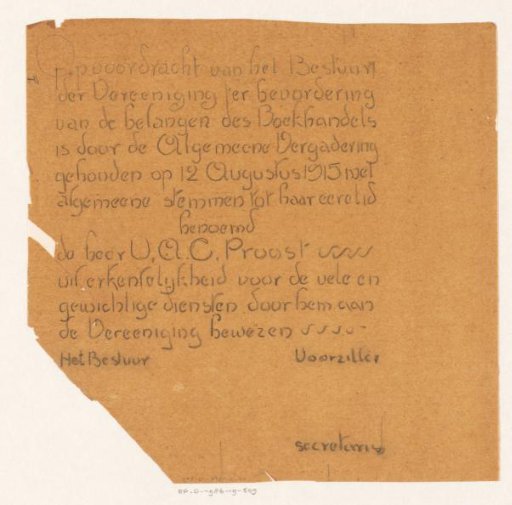 Op voordracht van het Bestuur
der Vereeniging ter bevordering
van de belangen des Boekhandels
is door de Algemeene Vergadering
gehouden op 12 Augustus 1915 met
algemeene stemmen tot haar eerelid
benoemd
de heer U. A. C. Proost
uit erkentelijkheid voor de vele en
gewichtige diensten door hem aan
de Vereeniging bewezen
Het Bestuur Voorzitter
secretaris